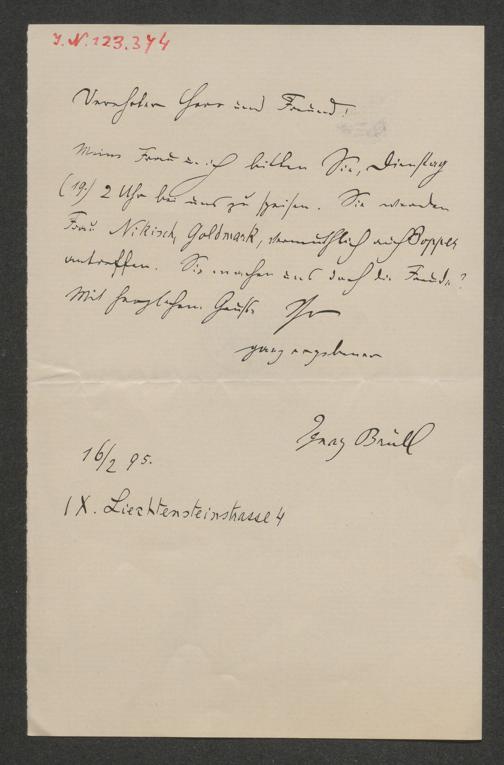 I.N. 123.374
Verehrter Herr und Freund!
Meine Frau u. ich bitten Sie, Dienstag
(19.) 2 Uhr bei uns zu speisen. Sie werden
Frau Nikisch, Goldmark, vermuthlich auch Popper
antreffen. Sie machen uns doch die Freude?
Mit herzlichem Gruße Ihr
ganz ergebener
Ignaz Brüll
16/2 95.
IX. Liechtensteinstrasse 4